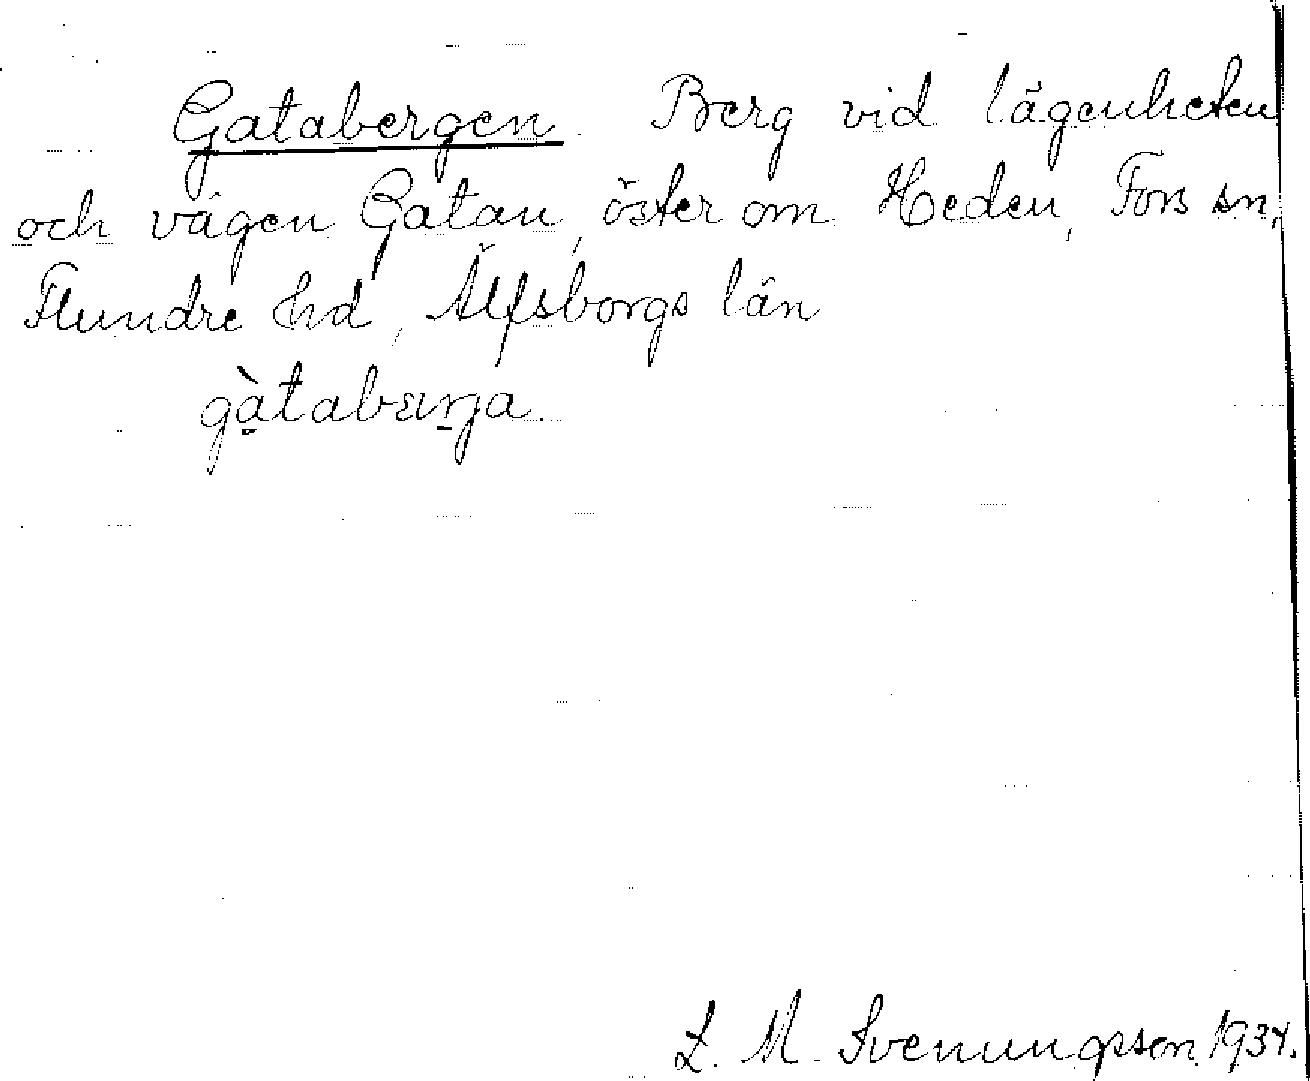 Gatabergen. Berg vid lägenheten
och vägen Gatan, öster om Heden, Fors sn,
Flundre hd, Älfsborgs län
gàtabærja.
L. M. Svenungsson 1934.